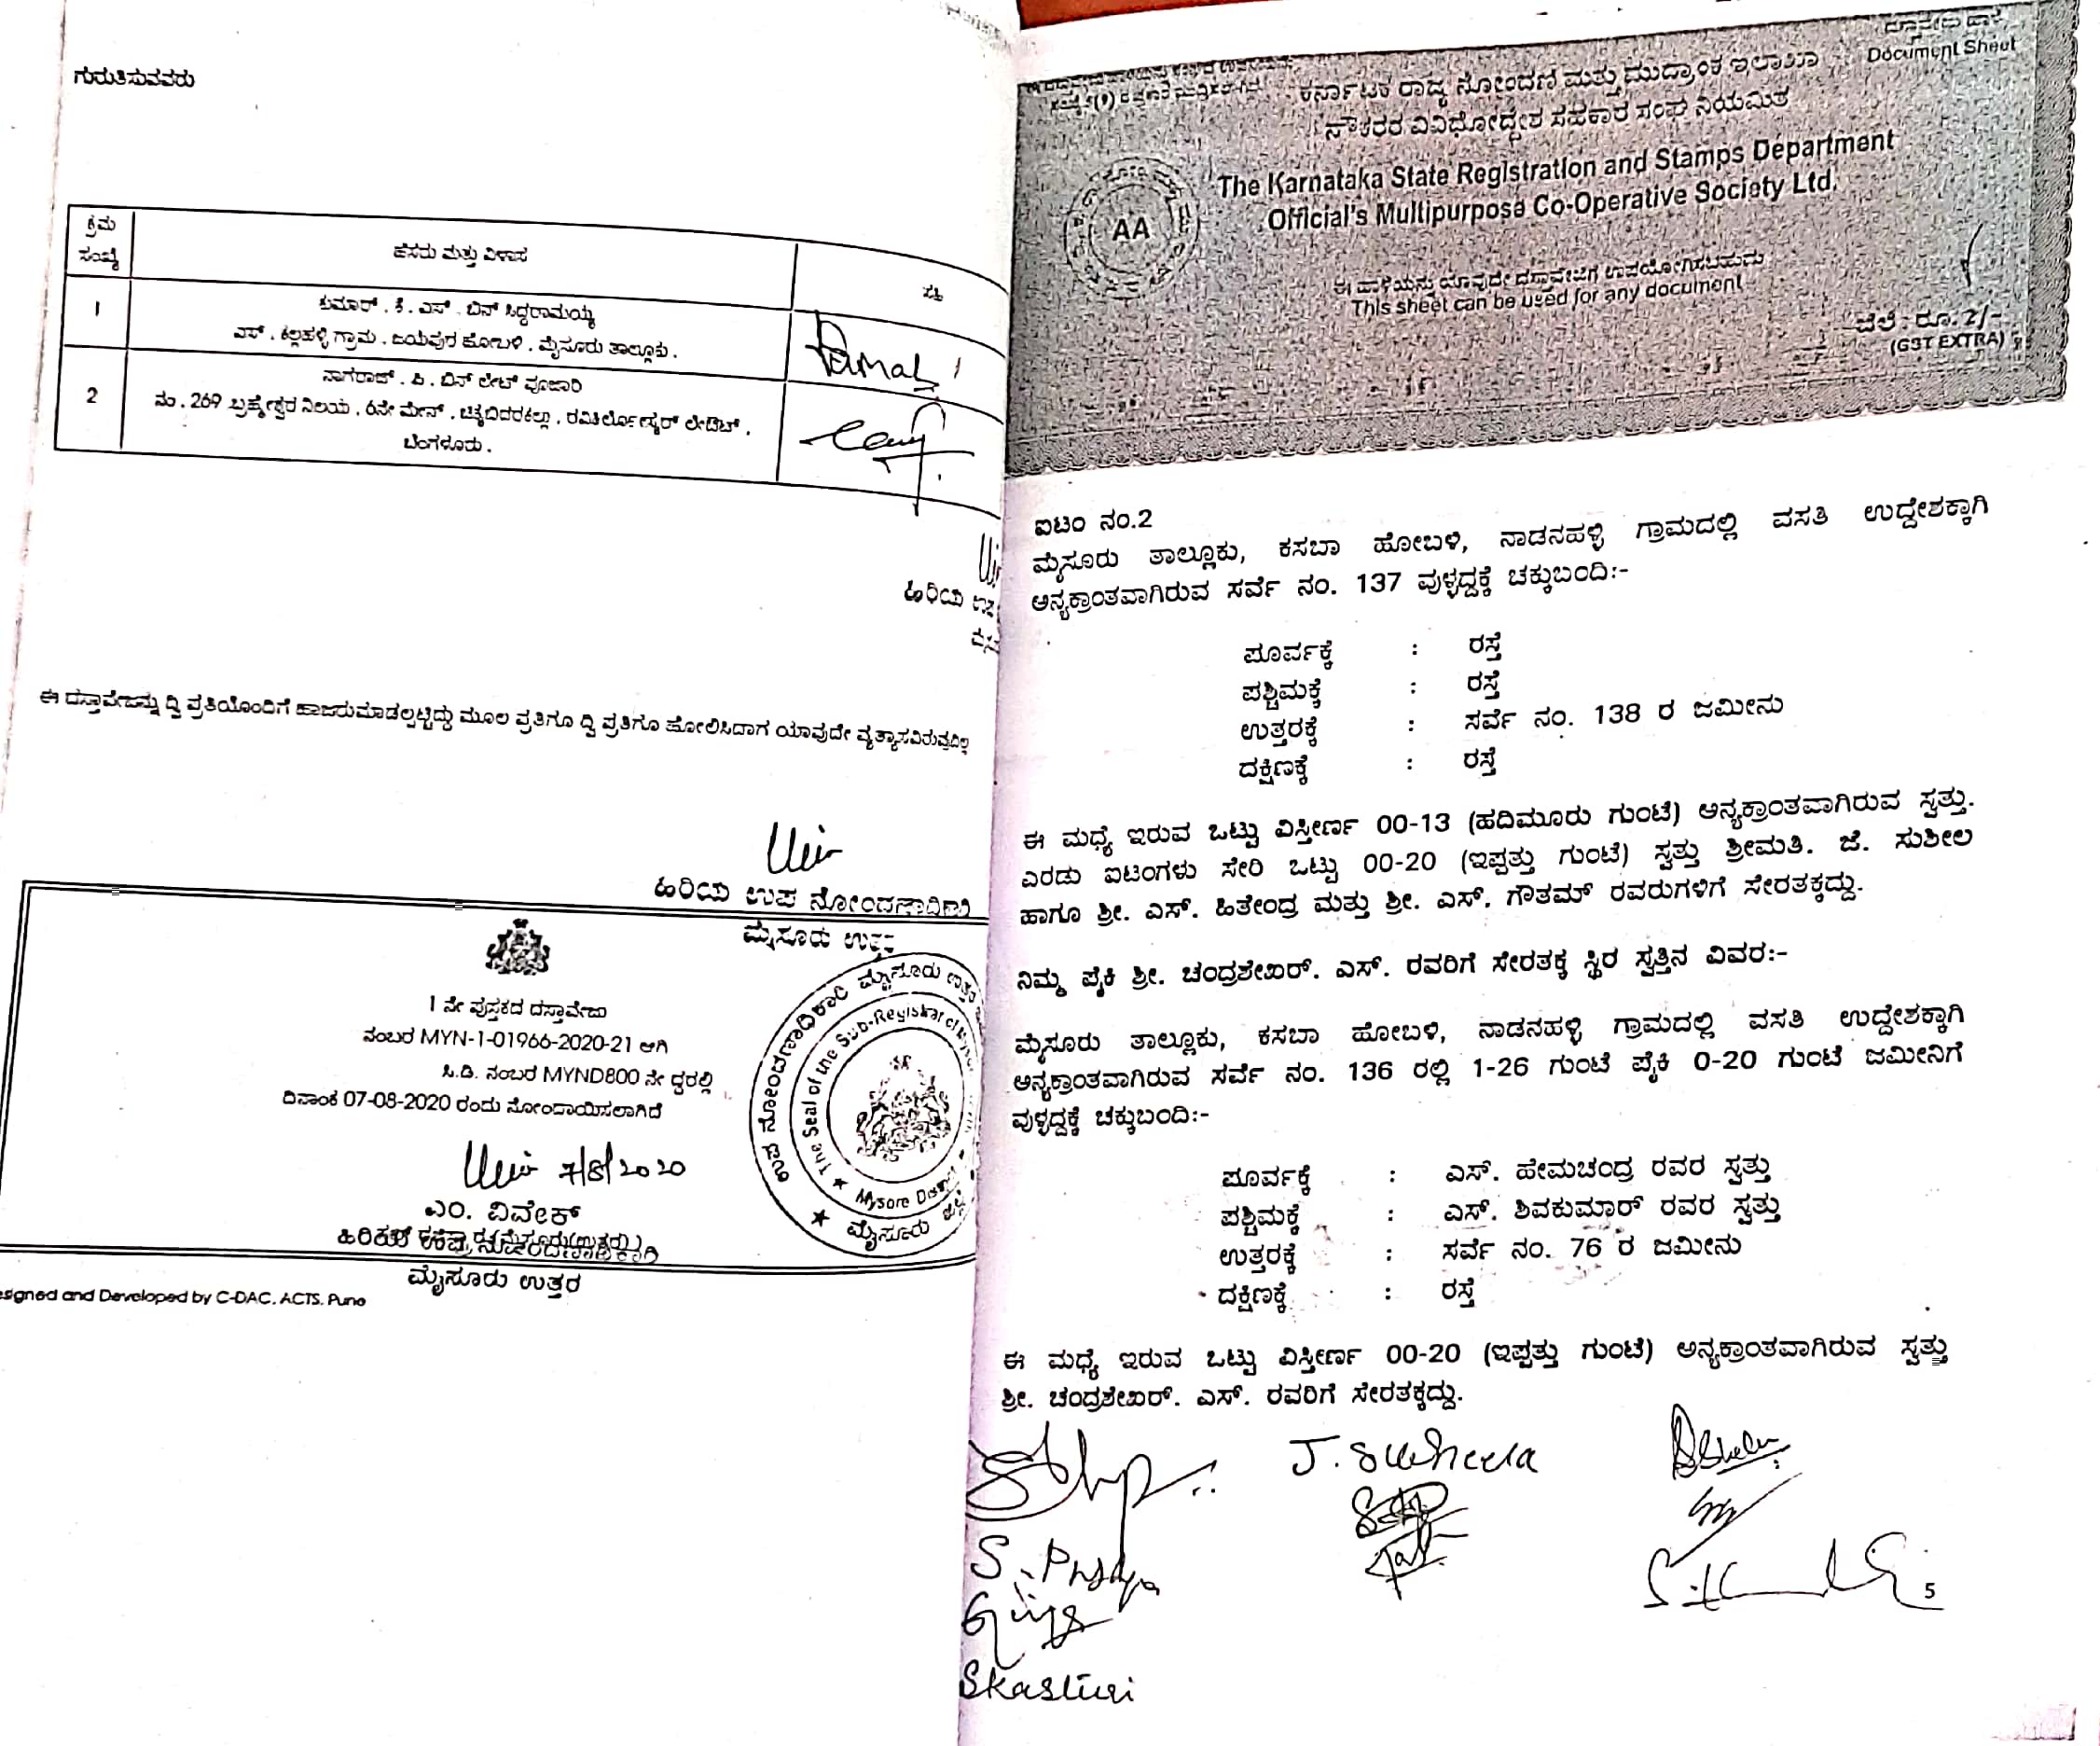 ಗುರುತಿಸುವವರು
ಕ್ರಮ ಸಂಖ್ಯೆ
ಹೆಸರು ಮತ್ತು ವಿಳಾಸ
ಸಹಿ
1
ಕುಮಾರ್ . ಕೆ . ಎಸ್ . ಬಿನ್ ಸಿದ್ದರಾಮಯ್ಯ
ಎಸ್ . ಕಲ್ಲಹಳ್ಳಿ ಗ್ರಾಮ . ಜಯಪುರ ಹೋಬಳಿ . ಮೈಸೂರು ತಾಲ್ಲೂಕು .
2
ನಾಗರಾಜ್ . ಪಿ . ಬಿನ್ ಲೇಟ್ ಪೂಜಾರಿ
ನಂ . 269 ಬ್ರಹ್ಮೇಶ್ವರ ನಿಲಯ . 6ನೇ ಮೇನ್ . ಚಿಕ್ಕಬಿದರಕಲ್ಲು . ಲೇಔಟ್ .
ಬೆಂಗಳೂರು .
ಹಿರಿಯ
ಈ ದಸ್ತಾವೇಜನ್ನು ದ್ವಿ ಪ್ರತಿಯೊಂದಿಗೆ ಹಾಜರುಮಾಡಲ್ಪಟ್ಟಿದ್ದು ಮೂಲ ಪ್ರತಿಗೂ ದ್ವಿ ಪ್ರತಿಗೂ ಹೋಲಿಸಿದಾಗ ಯಾವುದೇ ವ್ಯತ್ಯಾಸವಿರುವುದಿಲ್ಲ
ಹಿರಿಯ ಉಪ ನೋಂದಣಾಧಿಕಾರಿ
ಮೈಸೂರು ಉತ್ತರ
1 ನೇ ಪುಸ್ತಕದ ದಸ್ತಾವೇಜು
ನಂಬರ MYN-1-01966-2020-21 ಆಗಿ
ಸಿ.ಡಿ. ನಂಬರ MYND800 ನೇ ದ್ದರಲ್ಲಿ
ದಿನಾಂಕ 07-08-2020 ರಂದು ನೋಂದಾಯಿಸಲಾಗಿದೆ
7/8/2020
ಎಂ. ವಿವೇಕ್
ಹಿರಿಯ ಉಪ ನೋಂದಣಾಧಿಕಾರಿ
ಮೈಸೂರು ಉತ್ತರ
ಉಪ ನೋಂದಣಾಧಿಕಾರಿ ಮೈಸೂರು ಉತ್ತರ
The Seal of the Sub-Registrar of
Mysore
ಮೈಸೂರು
signed and Developed by C-DAC. ACTS. Pune
Document Sheet
ಕರ್ನಾಟಕ ರಾಜ್ಯ ನೋಂದಣಿ ಮತ್ತು ಮುದ್ರಾಂಕ ಇಲಾಖಾ
ನೌಕರರ ವಿವಿಧೋದ್ದೇಶ ಸಹಕಾರ ಸಂಘ ನಿಯಮಿತ
The Karnataka State Registration and Stamps Department
Official's Multipurpose Co-Operative Society Ltd.
AA
ಈ ಹಾಳೆಯನ್ನು ಯಾವುದೇ ದಸ್ತಾವೇಜಿಗೆ ಉಪಯೋಗಿಸಬಹುದು
This sheet can be used for any document
ಬೆಲೆ - ರೂ. 2/-
(GST EXTRA)
ಐಟಂ ನಂ.2
ಮೈಸೂರು ತಾಲ್ಲೂಕು, ಕಸಬಾ ಹೋಬಳಿ, ನಾಡನಹಳ್ಳಿ ಗ್ರಾಮದಲ್ಲಿ ವಸತಿ ಉದ್ದೇಶಕ್ಕಾಗಿ
ಅನ್ಯಕ್ರಾಂತವಾಗಿರುವ ಸರ್ವೆ ನಂ. 137 ವುಳ್ಳದ್ದಕ್ಕೆ ಚಕ್ಕುಬಂದಿ:-
ಪೂರ್ವಕ್ಕೆ : ರಸ್ತೆ
ಪಶ್ಚಿಮಕ್ಕೆ : ರಸ್ತೆ
ಉತ್ತರಕ್ಕೆ : ಸರ್ವೆ ನಂ. 138 ರ ಜಮೀನು
ದಕ್ಷಿಣಕ್ಕೆ : ರಸ್ತೆ
ಈ ಮಧ್ಯೆ ಇರುವ ಒಟ್ಟು ವಿಸ್ತೀರ್ಣ 00-13 (ಹದಿಮೂರು ಗುಂಟೆ) ಅನ್ಯಕ್ರಾಂತವಾಗಿರುವ ಸ್ವತ್ತು.
ಎರಡು ಐಟಂಗಳು ಸೇರಿ ಒಟ್ಟು 00-20 (ಇಪ್ಪತ್ತು ಗುಂಟೆ) ಸ್ವತ್ತು ಶ್ರೀಮತಿ. ಜೆ. ಸುಶೀಲ
ಹಾಗೂ ಶ್ರೀ. ಎಸ್. ಹಿತೇಂದ್ರ ಮತ್ತು ಶ್ರೀ. ಎಸ್. ಗೌತಮ್ ರವರುಗಳಿಗೆ ಸೇರತಕ್ಕದ್ದು.
ನಿಮ್ಮ ಪೈಕಿ ಶ್ರೀ. ಚಂದ್ರಶೇಖರ್. ಎಸ್. ರವರಿಗೆ ಸೇರತಕ್ಕ ಸ್ಥಿರ ಸ್ವತ್ತಿನ ವಿವರ:-
ಮೈಸೂರು ತಾಲ್ಲೂಕು, ಕಸಬಾ ಹೋಬಳಿ, ನಾಡನಹಳ್ಳಿ ಗ್ರಾಮದಲ್ಲಿ ವಸತಿ ಉದ್ದೇಶಕ್ಕಾಗಿ
ಅನ್ಯಕ್ರಾಂತವಾಗಿರುವ ಸರ್ವೆ ನಂ. 136 ರಲ್ಲಿ 1-26 ಗುಂಟೆ ಪೈಕಿ 0-20 ಗುಂಟೆ ಜಮೀನಿಗೆ
ವುಳ್ಳದ್ದಕ್ಕೆ ಚಕ್ಕುಬಂದಿ:-
ಪೂರ್ವಕ್ಕೆ : ಎಸ್. ಹೇಮಚಂದ್ರ ರವರ ಸ್ವತ್ತು
ಪಶ್ಚಿಮಕ್ಕೆ : ಎಸ್. ಶಿವಕುಮಾರ್ ರವರ ಸ್ವತ್ತು
ಉತ್ತರಕ್ಕೆ : ಸರ್ವೆ ನಂ. 76 ರ ಜಮೀನು
ದಕ್ಷಿಣಕ್ಕೆ : ರಸ್ತೆ
ಈ ಮಧ್ಯೆ ಇರುವ ಒಟ್ಟು ವಿಸ್ತೀರ್ಣ 00-20 (ಇಪ್ಪತ್ತು ಗುಂಟೆ) ಅನ್ಯಕ್ರಾಂತವಾಗಿರುವ ಸ್ವತ್ತು
ಶ್ರೀ. ಚಂದ್ರಶೇಖರ್. ಎಸ್. ರವರಿಗೆ ಸೇರತಕ್ಕದ್ದು.
J. Susheela
Skasturi
5